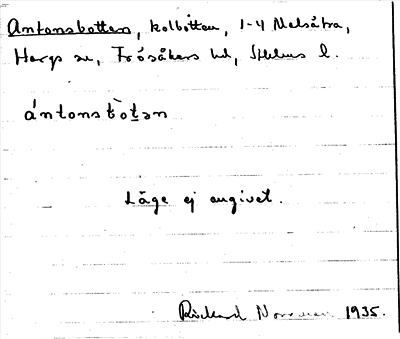 Antonsbotten, kolbotten, 1-4 Malsätra,
Hargs sn, Frösåkers hd, Sthlms l.
ántonsbòtən
Läge ej angivet.
Rickard Norrman 1935.